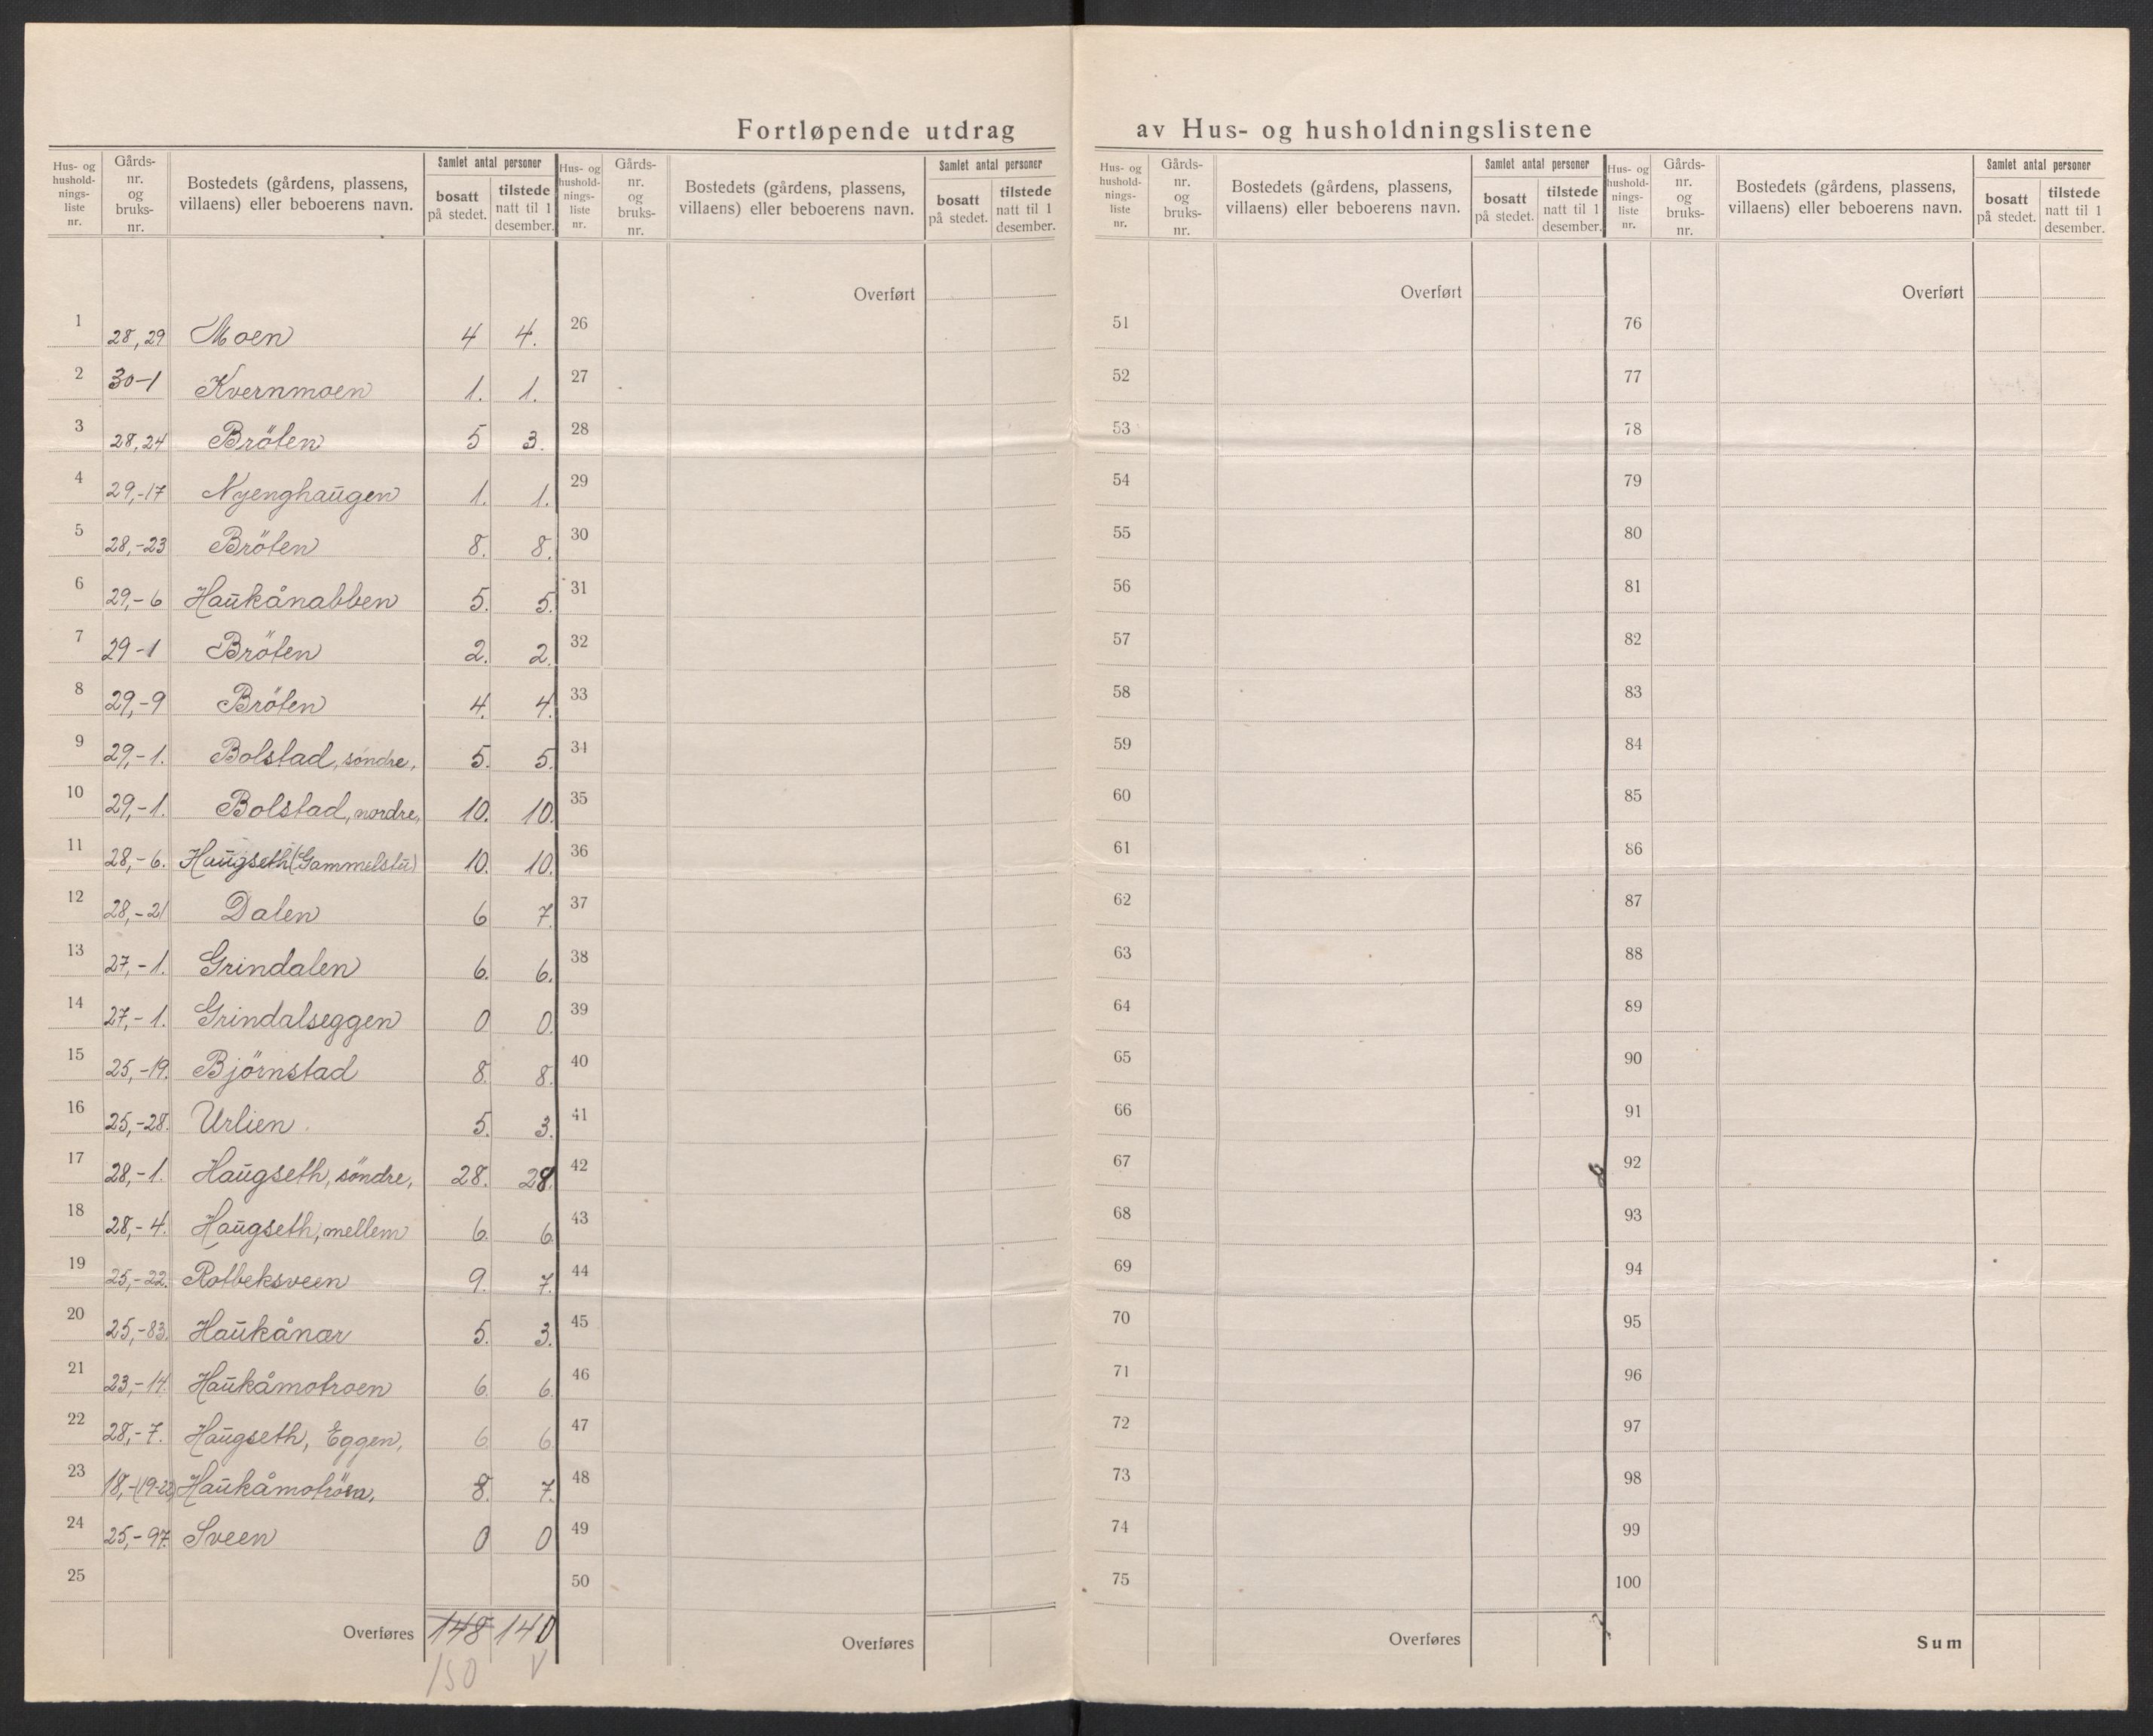 Fortløpende utdrag av Hus- og husholdningslistene
Hus- og hushold-nings-liste nr. | Gårds-nr. og bruks-nr. | Bostedets (gårdens, plassens, villaens) eller beboerens navn. | Samlet antal personer | bosatt på stedet. | tilstede natt til 1 desember.
1 28,29 Moen 4 4.
2 30-1 Kvernmoen 1. 1.
3 28,24 Bröten 5 3.
4 29,-17 Nyenghaugen 1. 1.
5 28,-23 Bröten 8. 8.
6 29,-6 Haukånabben 5. 5.
7 29-1 Bröten 2. 2.
8 29,-9 Bröten 4. 4.
9 29,-1. Bolstad, söndre, 5. 5.
10 29,-1. Bolstad, nordre, 10. 10.
11 28,-6. Haugseth (Gammelstu) 10. 10.
12 28,-21 Dalen 6 7.
13 27,-1. Grindalen 6. 6.
14 27,-1. Grindalseggen 0 0.
15 25,-19. Björnstad 8. 8.
16 25,-28. Urlien 5. 3.
17 28,-1. Haugseth, söndre, 28. 28.
18 28,-4. Haugseth, mellem 6. 6
19 25,-22. Rotbeksveen 9. 7.
20 25,-83. Haukånær 5. 3.
21 23,-14. Haukåmotroen 6. 6.
22 28,-7. Haugseth, Eggen, 6 6
23 18,-(19-22) Haukåmotröen, 8. 7.
24 25,-97. Sveen 0 0
25
Overføres 148 140
150 V
Hus- og hushold-nings-liste nr. | Gårds-nr. og bruks-nr. | Bostedets (gårdens, plassens, villaens) eller beboerens navn. | Samlet antal personer | bosatt på stedet. | tilstede natt til 1 desember.
Overført
26
27
28
29
30
31
32
33
34
35
36
37
38
39
40
41
42
43
44
45
46
47
48
49
50
Overføres
Hus- og hushold-nings-liste nr. | Gårds-nr. og bruks-nr. | Bostedets (gårdens, plassens, villaens) eller beboerens navn. | Samlet antal personer | bosatt på stedet. | tilstede natt til 1 desember.
Overført
51
52
53
54
55
56
57
58
59
60
61
62
63
64
65
66
67
68
69
70
71
72
73
74
75
Overføres
Hus- og hushold-nings-liste nr. | Gårds-nr. og bruks-nr. | Bostedets (gårdens, plassens, villaens) eller beboerens navn. | Samlet antal personer | bosatt på stedet. | tilstede natt til 1 desember.
Overført
76
77
78
79
80
81
82
83
84
85
86
87
88
89
90
91
92
93
94
95
96
97
98
99
100
Sum